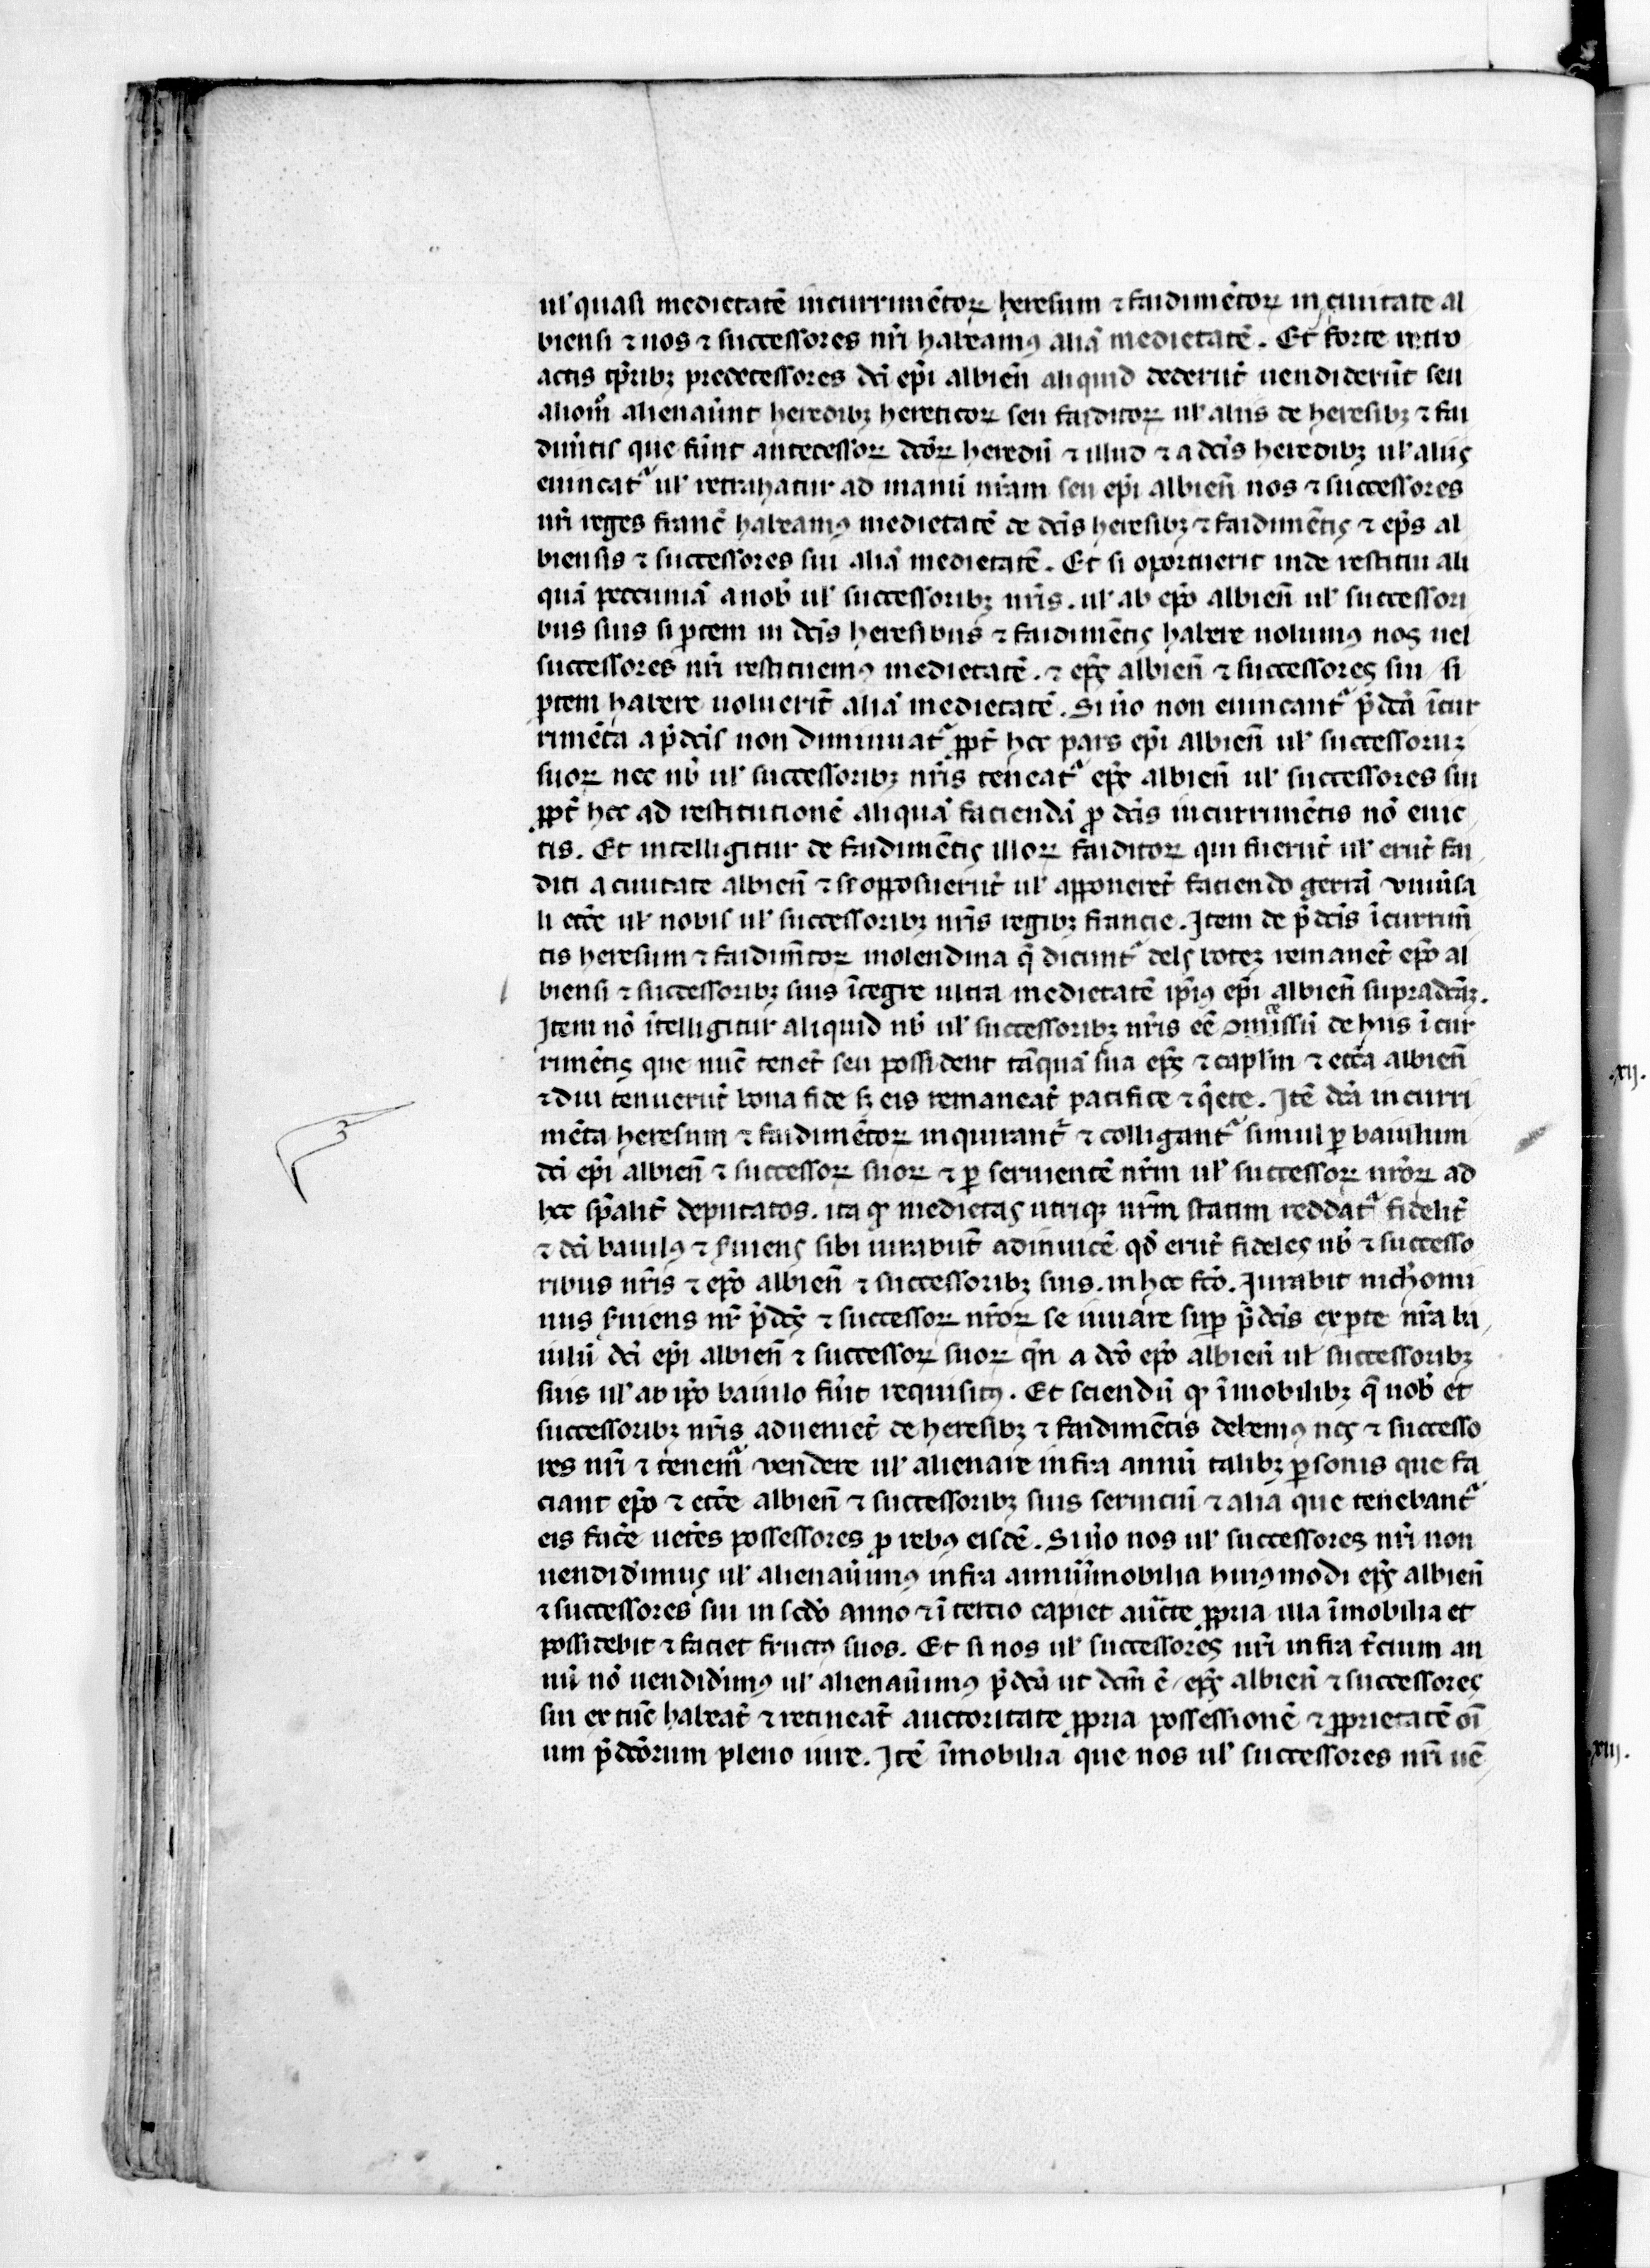 ul' quasi medietatē incurrimētoꝝ heresum ⁊ faidimētoꝝ in ciuitate al
biensi ⁊ nos ⁊ successores nr̄i habeamꝰ aliā medietatē. Et forte retro
actis tp̄ribꝫ predecessores dc̄i ep̄i albieñ aliquid dederūt uendiderūt seu
alioᷓm alienauͥnt heredibꝫ hereticoꝝ seu faiditoꝝ ul' aliis de heresibꝫ ⁊ fai
dimͥtis que fuͥnt antecessoꝝ dc̄oꝝ heredū ⁊ illud ⁊ a dc̄is heredibꝫ ul' aliis
euincat᷑ ul' retrahatur ad manū nr̄am seu ep̄i albieñ nos ⁊ successores
nr̄i reges franc̄ habeamꝰ medietatē de dc̄is heresibꝫ ⁊ faidimētis ⁊ ep̄s al
biensis ⁊ successores sui aliā medietatē. Et si oportuerit inde restitui ali
quā peccuniā a nob̄ ul' successoribꝫ nr̄is. ul' ab ep̄o albieñ ul' successori
bus suis si ꝑtem in dc̄is heresibus ⁊ faidimētis habere uolumꝰ nos uel
successores nr̄i restituemꝰ medietatē. ⁊ ep̄s albieñ ⁊ successores sui si
ꝑtem habere uoluerīt aliā medietatē. Si ūo non euincant᷑ p̄dc̄a īcur
rimēta a p̄dc̄is non diminuat᷑ ꝓpt̄ hec pars ep̄i albieñ ul' successorum
suoꝝ nec nb̄ ul' successoribꝫ nr̄is teneat᷑ ep̄s albieñ ul' successores sui
ꝓpt̄ hec ad restitutionē aliquā faciendā ꝓ dc̄is incurrimētis nō euic
tis. Et intelligitur de faidimētis illoꝝ faiditoꝝ qui fuerūt ul' erūt fai
diti a ciuitate albieñ ⁊ se opposuerūt ul' apponerēt faciendo gerrā vniūsa
li ecc̄e ul' nobis ul' successoribꝫ nr̄is regibꝫ francie. Item de p̄dc̄is īcurrim̄
tis heresum ⁊ faidim̄toꝝ molendina q̄ dicunt᷑ dels botez remanēt ep̄o al
biensi ⁊ successoribꝫ suis ītegre ultra medietatē ip̄iꝰ ep̄i albieñ supradc̄am.
Item nō ītelligitur aliquid nb̄ ul' successoribꝫ nr̄is eē ꝯmissū de hiis īcur
rimētis que nūc tenēt seu possident tāquā sua ep̄s ⁊ capl'm ⁊ ecc̄a albieñ
⁊ diu tenuerūt bona fide sꝫ eis remaneāt pacifice ⁊ qͥete. Itē dc̄a incurri
mēta heresum ⁊ faidimētoꝝ inquirant᷑ ⁊ colligant᷑ simul ꝑ baiulum
dc̄i ep̄i albieñ ⁊ successoꝝ suoꝝ ⁊ ꝑ seruientē nr̄m ul' successoꝝ nr̄oꝝ ad
hec sp̄alit̄ deputatos. ita ꝙ medietas utriqꝫ nr̄m statim reddat᷑ fidelit̄
⁊ dc̄i baiulꝰ ⁊ s̄uiens sibi iurabūt adinuicē qd̄ erūt fideles nb̄ ⁊ successo
ribus nr̄is ⁊ ep̄o albieñ ⁊ successoribꝫ suis. in hec fc̄o. Iurabit nich̄omi
nus s̄uiens nr̄ p̄dc̄s ⁊ successoꝝ nr̄oꝝ se iuuare suꝑ p̄dc̄is ex ꝑte nr̄a ba
iulū dc̄i ep̄i albieñ ⁊ successoꝝ suoꝝ qn̄ a dc̄o ep̄o albieñ ul' successoribꝫ
suis ul' ab ip̄o baiulo fūit requisitꝰ. Et sciendū ꝙ īmobilibꝫ q̄ nob̄ et
successoribꝫ nr̄is adueniēt de heresibꝫ ⁊ faidimētis debemꝰ nos ⁊ successo
res nr̄i ⁊ tenem᷑ vendere ul' alienare infra annū talibꝫ ꝑsonis que fa
ciant ep̄o ⁊ ecc̄e albieñ ⁊ successoribꝫ suis seruiciū ⁊ alia que tenebant᷑
eis fac̄e uet̄es possessores ꝓ rebꝰ eisdē. Si ūo nos ul' successores nr̄i non
uendid̄imus ul' alienaūimꝰ infra annū īmobilia huiꝰmodi ep̄s albieñ
⁊ successores sui in sc̄do anno ⁊ ī tercio capiet auct̄te ꝓpria illa īmobilia et
possidebit ⁊ faciet fructꝰ suos. Et si nos ul' successores nr̄i infra t̄cium an
nū nō uendid̄imꝰ ul' alienaūimꝰ p̄dc̄a ut dc̄m ē ep̄s albieñ ⁊ successores
sui ex tūc habeāt ⁊ retineāt auctoritate ꝓpria possessionē ⁊ ꝓprietatē oī
um p̄dc̄orum pleno iure. Itē īmobilia que nos ul' successores nr̄i uē
.xij.
.xiij.